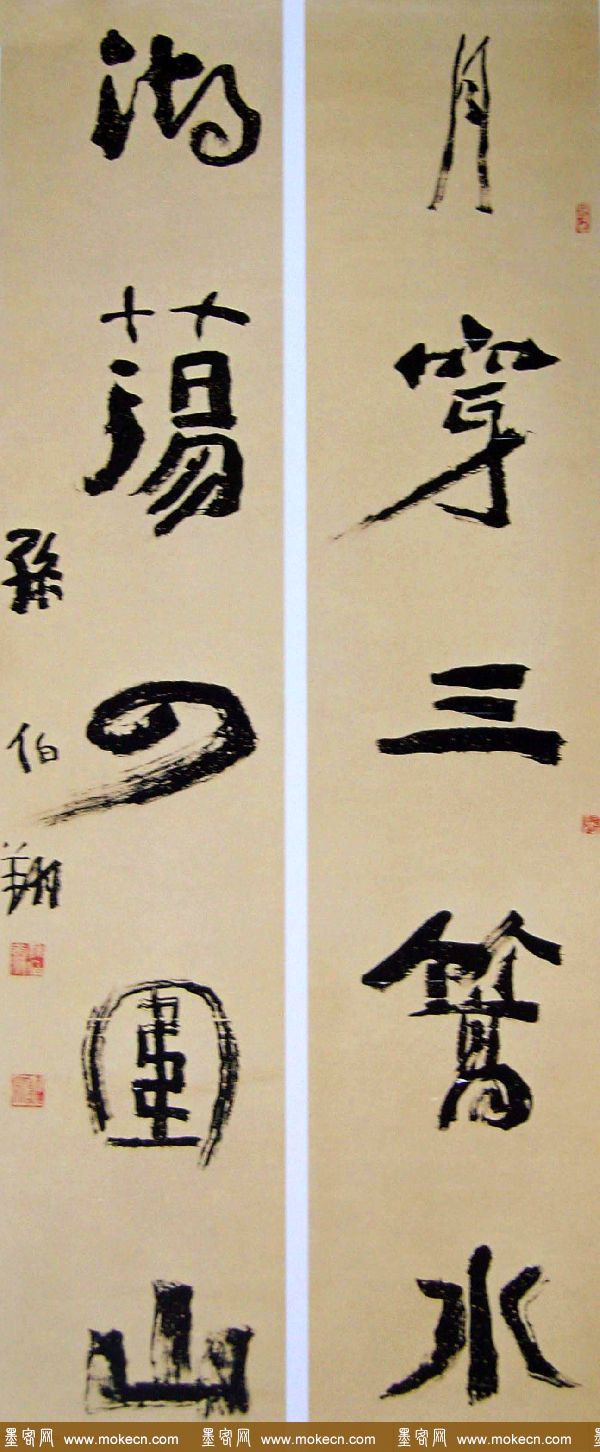 月穿三篙水
湖蕩四圍山
孫伯翔
墨客网 www.mokecn.com 墨客网 www.mokecn.com 墨客网 www.mokecn.com